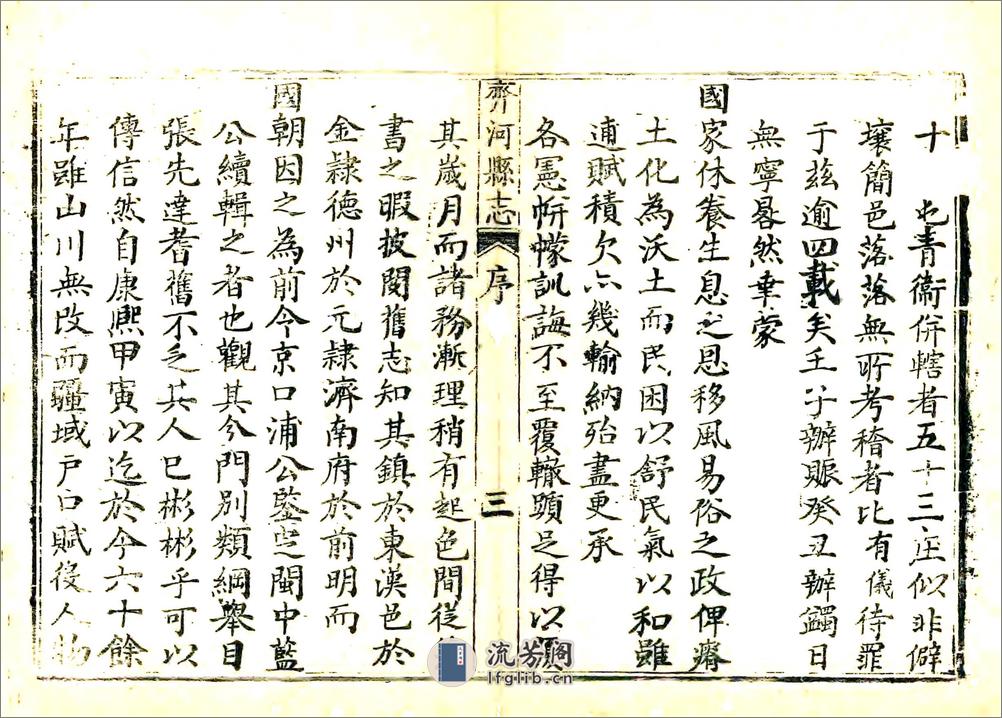 十 屯青衞併轄者五十三庄似非僻
壤簡邑落落無所考稽者比有儀待罪
于兹逾四載矣壬子辦賑癸丑辦蠲日
無寧晷然幸蒙
國家休養生息之恩移風易俗之政俾瘠
土化為沃土而民困以舒民氣以和雖
逋賦積欠亦幾輸納殆盡更承
各憲帡幪訓誨不至覆轍顕足得以
齊河縣志 序 三
其歲月而諸務漸理稍有起色間從
書之暇披閱舊志知其鎮於東漢邑於
金隷德州於元隷濟南府於前明而
國朝因之為前令京口浦公鑒定閩中藍
公續輯之者也觀其分門别類綱舉目
張先達耆舊不乏其人已彬彬乎可以
傳信然自康熙甲寅以迄於今六十餘
年雖山川無改而疆域戸口賦役人物
流芳阁
lfglib.cn